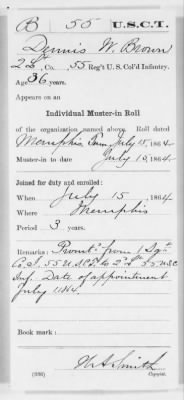 B 55 U.S.C.T.
Dennis W. Brown
2 Lt, Co. , 55 Reg't U. S. Col'd Infantry.
Age 36 years.
Appears on an
Individual Muster-in Roll
of the organization named above. Roll dated
Memphis, Tenn July 15, 1864.
Muster-in to date July 10, 1864.
Joined for duty and enrolled:
When July 15, 1864.
Where Memphis
Period 3 years.
Remarks: Promt'd from 1 Sgt.
Co. 55 U.S.C.T. to 2d Lt 55 U.S.C
Inf. Date of appointment
July 11 1864.
Book mark:
Smith
Copyist.